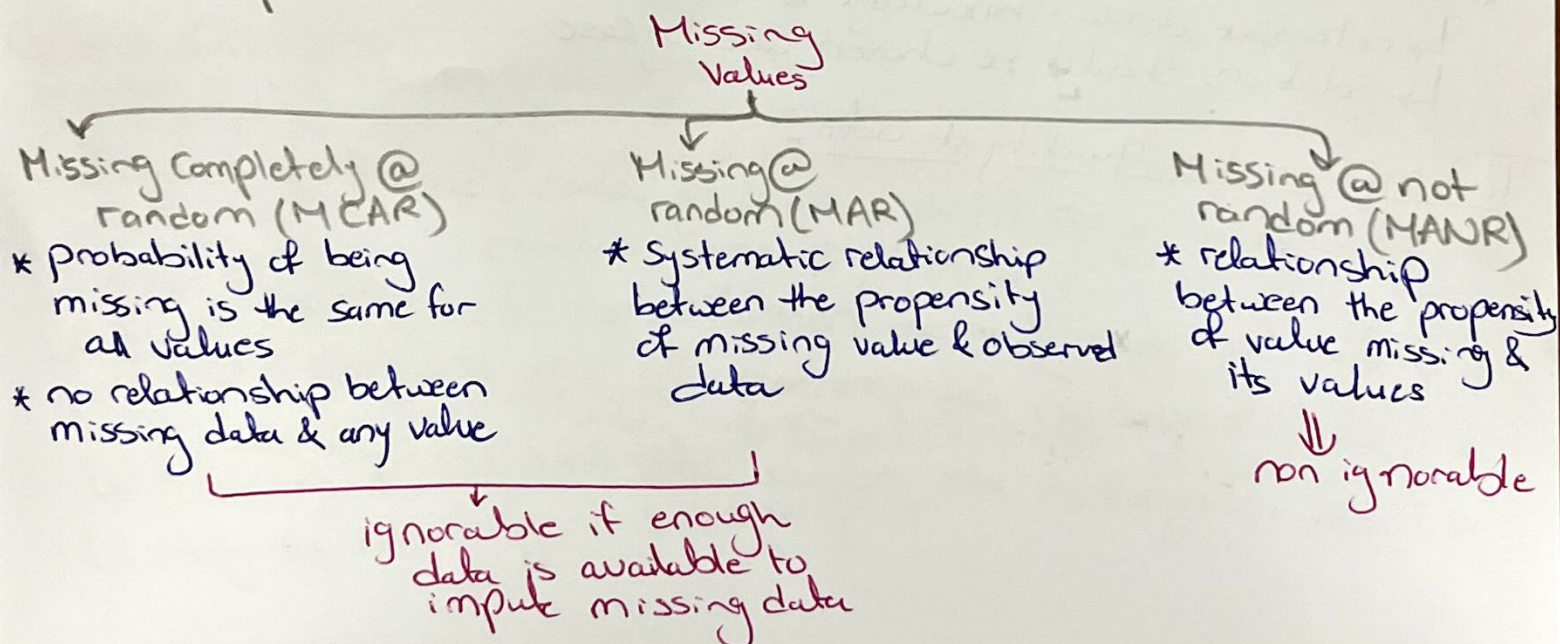 Missing
Values
Missing Completely @
random (MCAR)
* probability of being
missing is the same for
all values
* no relationship between
missing data & any value
Missing @
random (MAR)
* Systematic relationship
between the propensity
of missing value & observed
data
Missing @ not
random (MANR)
* relationship
between the propensity
of value missing &
its values
non ignorable
ignorable if enough
data is available to
impute missing data